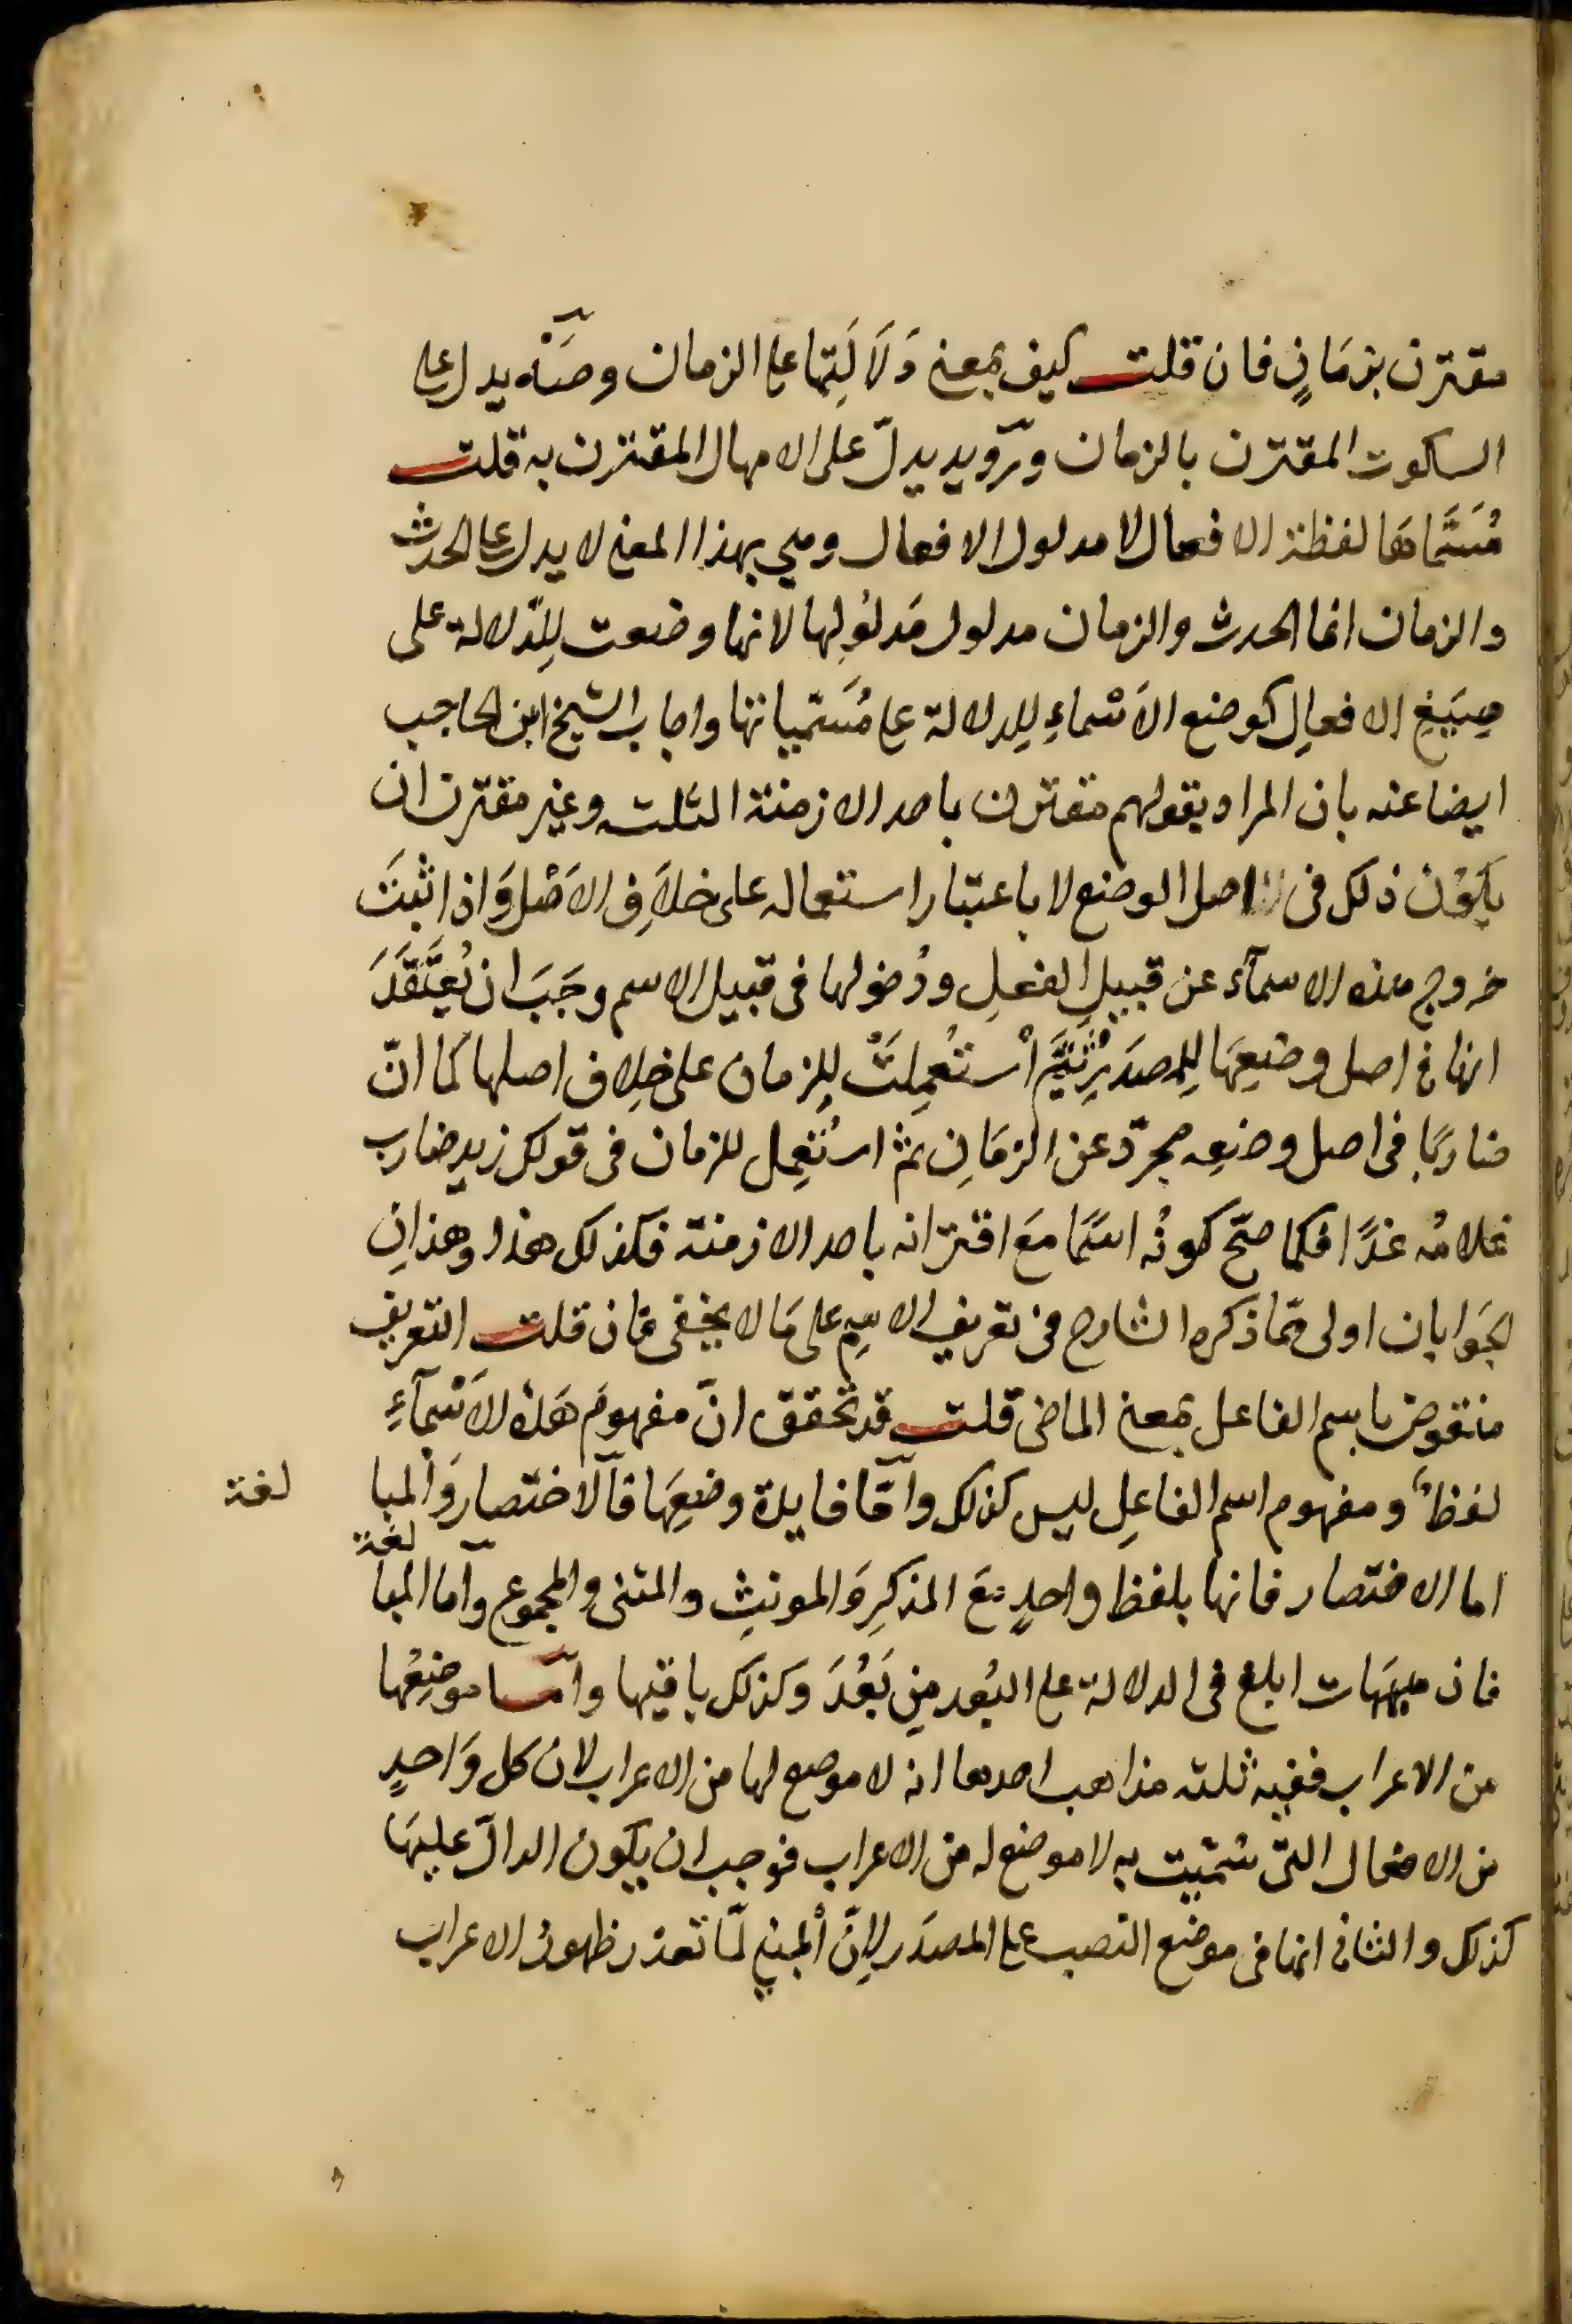 مقترن بزمَانٍ فان قلت كيف بمعنى دَلَالَتِها على الزمان وصَهْ يدل على
السكوت المقترن بالزمان ورُويد يدلّ على الامهال المقترن به قلت
مُسَمَّاهَا لفظة الافعال لا مدلول الافعال وهي بهذا المعنى لا يدل على الحدث
والزمان انما الحدث والزمان مدلول مَدلُولِها لانها وضعت لِلدّلالة على
صِيَغِ الافعالِ كوضع الاَسْماءِ لِلدلالة على مُسَمّياتها واجاب الشيخ ابن الحاجب
ايضا عنه بان المراد بقولهم مقترن باحد الازمنة الثلثه وغير مقترن ان
يكوُن ذلك فى اصل الوضع لا باعتبار استعماله على خلاَفِ الاَصْل وَاذا ثبتَ
خروج هذه الاسمآء عن قبيلِ الفعلِ ودُخولها فى قبيل الاسم وجَبَ ان يُعتَقَدَ
انها فى اصل وضعِهَا لِلمصدَرِيَّةِ ثُمَّ اُستُعمِلَتْ لِلزمان على خِلاف اصلها كما انّ
ضاربًا فى اصل وضعِه مجرّد عن الزمَانِ ثم استُعمِل للزمان فى قولك زيد ضارب
غلامُه غدًا فكما صحّ كونُه اسمًا معَ اقترانه باحد الازمنة فكذلك هذا وهذانِ
الجَوابان اولى ممّا ذكره الشارح فى تعريف الاسمِ على مَا لا يخفى فان قلت التعريف
منقوض باسم الفاعل بمعنى الماضى قلت قد تحقق انّ مفهومَ هَذه الاَسْمآءِ
لفظٌ ومفهوم اسم الفاعِل ليس كذلك وامّا فايدة وضعِهَا فالاختصار وَالمبا لغة
اما الاختصار فانها بلفظ واحدٍ معَ المذكرِ وَالمونثِ والمثنى والمجموع واما المبا لغة
فان هيهَات ابلغ فى الدلالة على البُعد مِن بَعُدَ وكذلك باقيها وامّا موضِعُها
من الاعراب ففيه ثلثه مذاهب احدها انه لا موضع لها من الاعراب لان كل وَاحدٍ
من الافعال التى سُمّيت به لا موضع له من الاعراب فوجب ان يكون الدالّ عليهَا
كذلك والثانى انها فى موضع النصب على المصدَر لاِنّ المبنى لمّا تعذر ظهورُ الاعراب